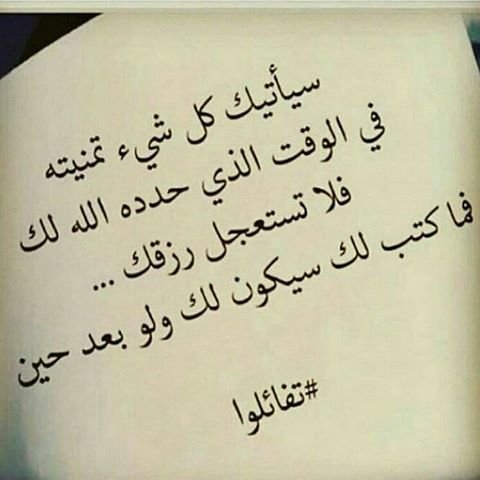 سيأتيك كل شيء تمنيته
في الوقت الذي حدده الله لك
فلا تستعجل رزقك ...
فما كتب لك سيكون لك ولو بعد حين
#تفائلوا